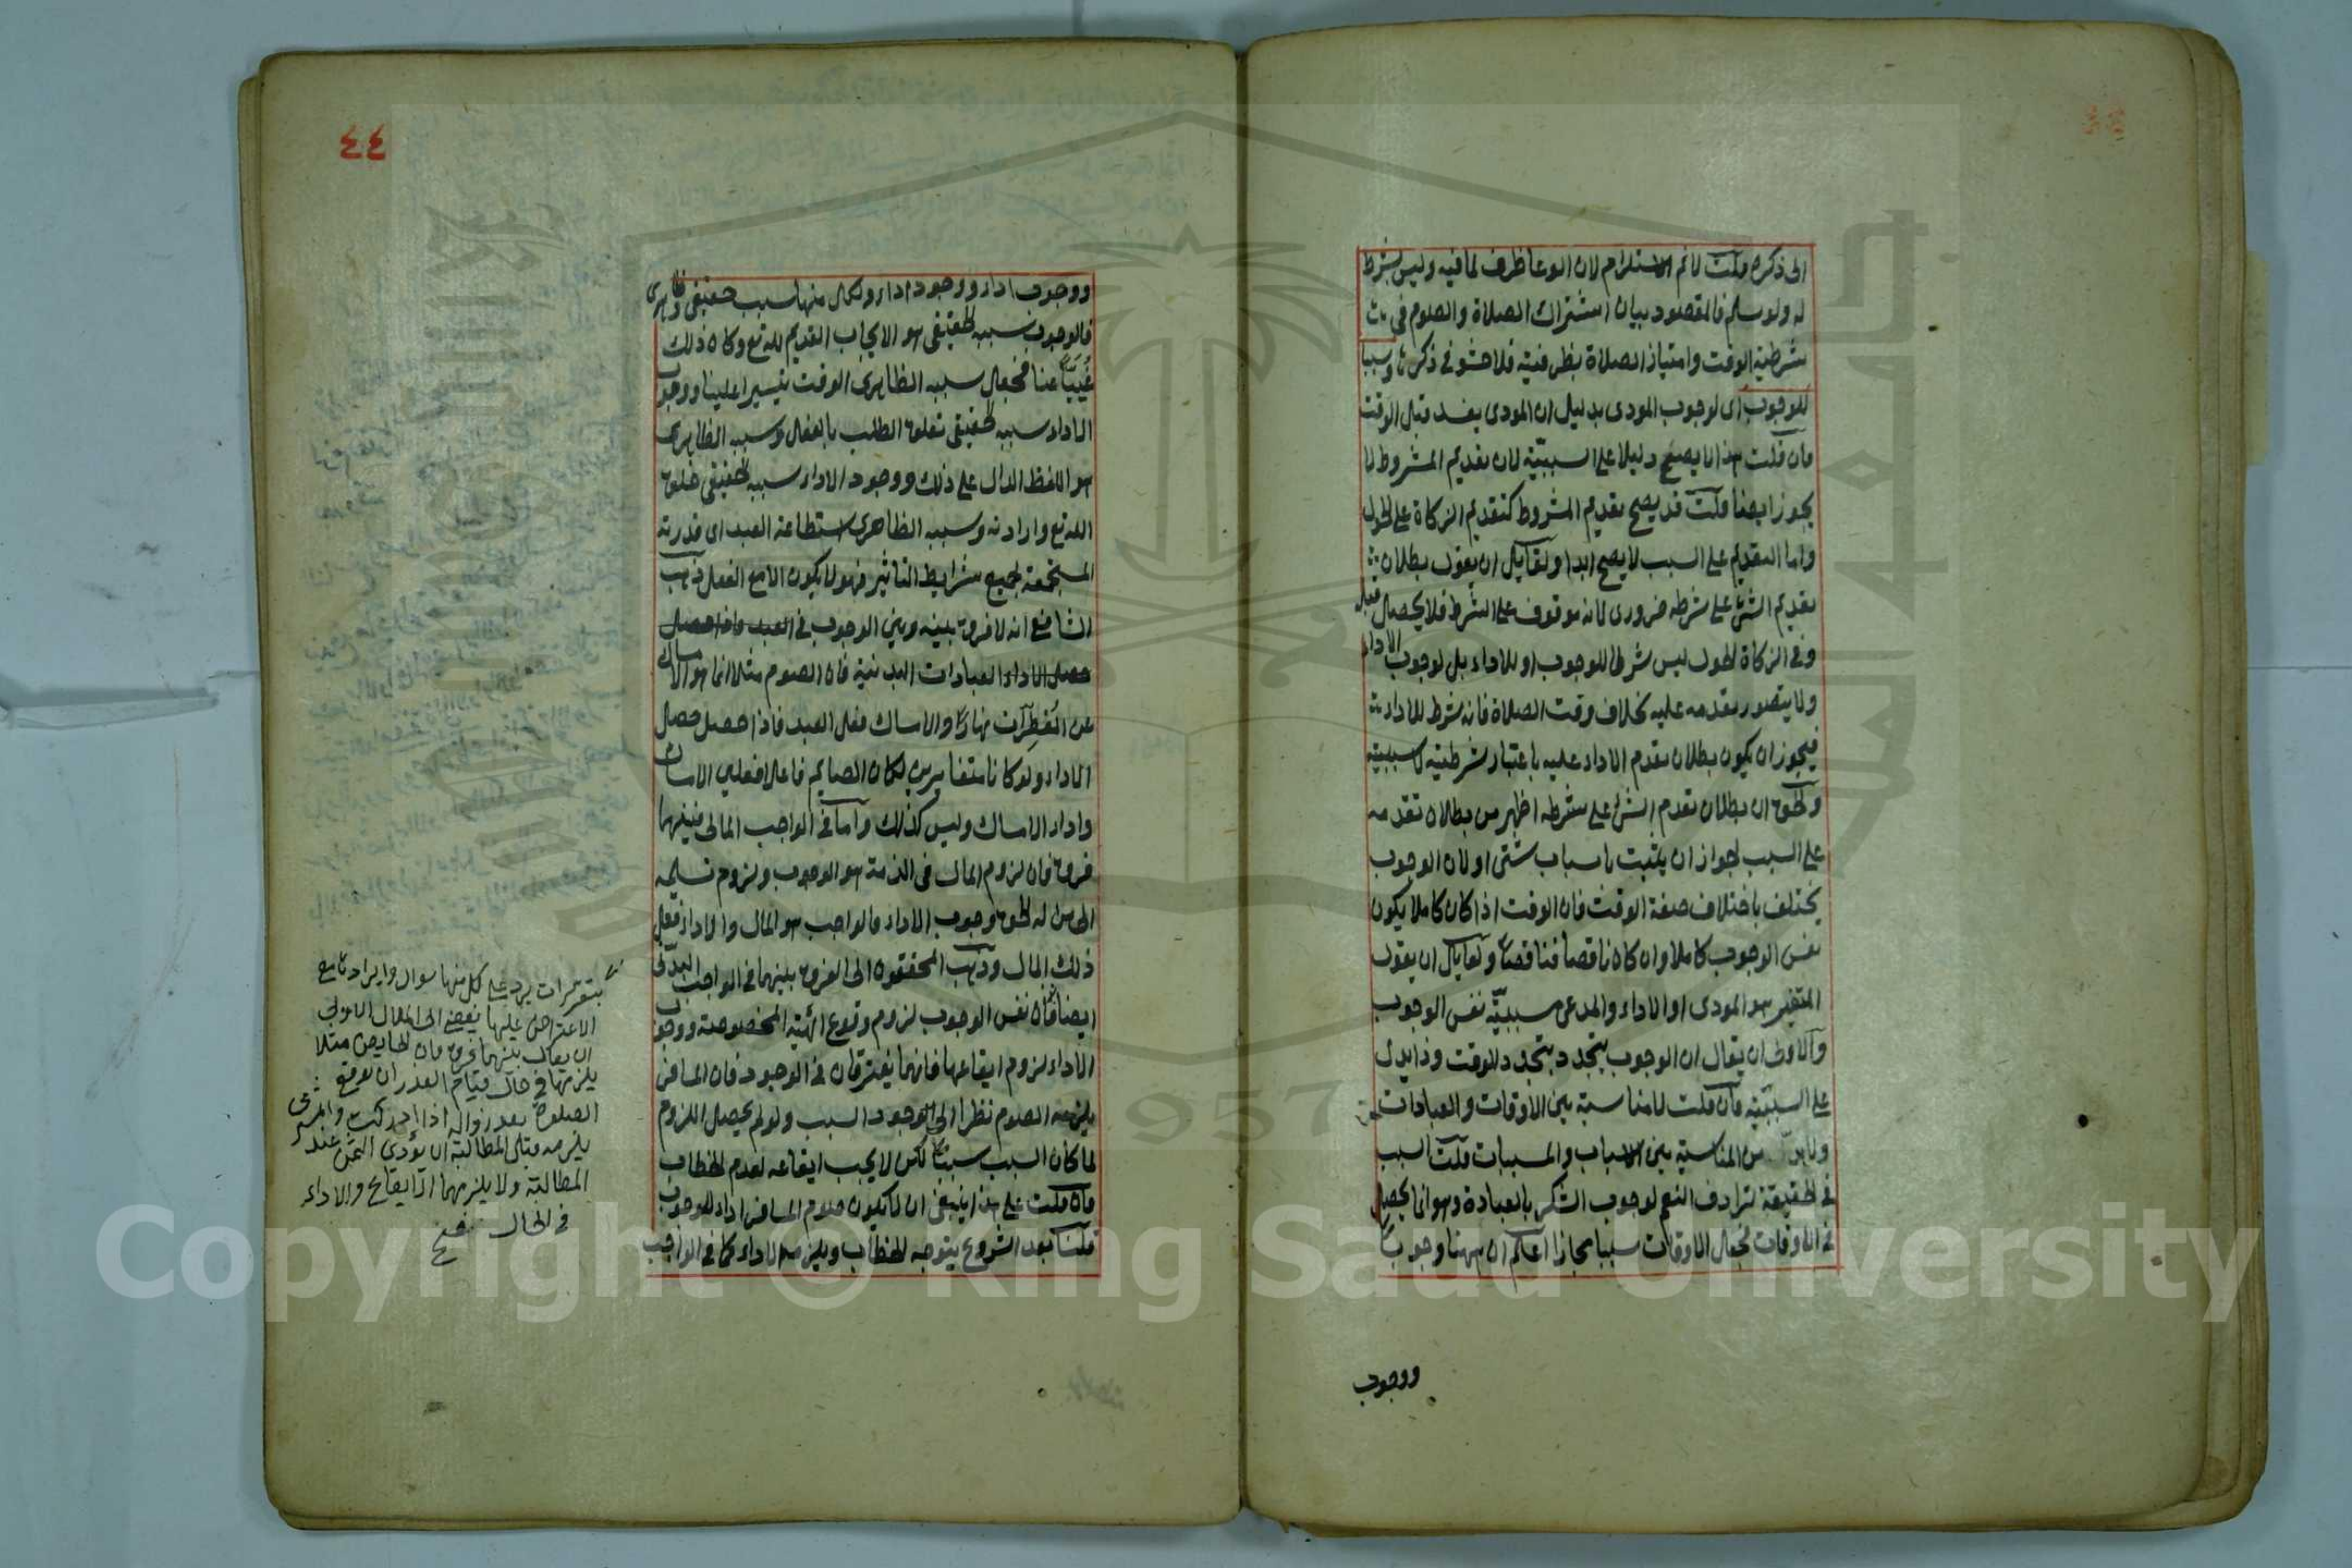 الى ذكره قلت لا نم الاستلزام لان الوعا ظرف لما فيه وليس بشرط
له ولو سلم فالمقصود بيان اشتراك الصلاة والصوم في
شرطية الوقت وامتياز الصلاة بظرفيته فلا حشو في ذكرها وسببا
للوجوب اى لوجوب المودى بدليل ان المودى يفسد قبل الوقت
فان قلت هذا لا يصلح دليلا على السببية لان تقديم المشروط لا
يجوز ايضا قلت قد يصح تقديم المشروط كتقديم الزكاة على الحول
واما التقديم على السبب لا يصح ابدا ولقايل ان يقول بطلان
تقديم الشئ على شرطه ضرورى لانه موقوف على الشرط فلا يحصل قبله
وفي الزكاة الحول ليس شرطا للوجوب او للاداء بل لوجوب الاداء
ولا يتصور تقدمه عليه بخلاف وقت الصلاة فانه شرط للاداء
فيجوز ان يكون بطلان تقدم الاداء عليه باعتبار شرطيته لا سببيته
والحق ان بطلان تقدم الشئ على شرطه اظهر من بطلان تقدمه
على السبب لجواز ان يثبت باسباب شتى او لان الوجوب
يختلف باختلاف صفة الوقت فان الوقت اذا كان كاملا يكون
نفس الوجوب كاملا وان كان ناقصا فناقصا ولقايل ان يقول
المتغير هو المودى او الاداء والمدعى سببية نفس الوجوب
والاولى ان يقال ان الوجوب يتجدد بتجدد الوقت وذا يدل
على السببية فان قلت لا مناسبة بين الاوقات والعبادات
ولا بد من المناسبة بين الاسباب والمسببات قلت السبب
في الحقيقة ترادف النعم لوجوب الشكر بالعبادة وهو انما يحصل
في الاوقات فجعل الاوقات سببا مجازا اعلم ان ههنا وجوبا
ووجوب
٤٤
ووجوب اداء ووجود اداء ولكل منها سبب حقيقى وظاهرى
فالوجوب سببه الحقيقى هو الايجاب القديم لله تع وكان ذلك
غيبا عنا فجعل سببه الظاهرى الوقت تيسيرا علينا ووجوب
الاداء سببه الحقيقى تعلق الطلب بالفعل وسببه الظاهرى
هو اللفظ الدال على ذلك ووجود الاداء سببه الحقيقى خلق
الله تع وارادته وسببه الظاهرى استطاعة العبد اى قدرته
المستجمعة لجميع شرايط التاثير فهو لا يكون الا مع الفعل ذهب
الشافعى انه لا فرق بينه وبين الوجوب في العبد واذا حصل
حصل الاداء العبادات البدنية فان الصوم مثلا انما هو الامساك
عن المفطرات نهارا والامساك فعل العبد فاذا حصل حصل
الاداء ولو كانا متغايرين لكان الصايم فاعلا فعلين الامساك
واداء الامساك وليس كذلك واما في الواجب المالى فبينهما
فرق فان لزوم المال في الذمة هو الوجوب ولزوم تسليمه
الى من له الحق وجوب الاداء فالواجب هو المال والاداء فعل
ذلك المال وذهب المحققون الى الفرق بينهما في الواجب البدنى
ايضا فان نفس الوجوب لزوم وقوع الهيئة المخصوصة ووجوب
الاداء لزوم ايقاعها فانهما يفترقان في الوجود فان المسافر
يلزمه الصوم نظرا الى وجود السبب ولو لم يحصل اللزوم
لما كان السبب سببا لكن لا يجب ايقاعه لعدم الخطاب
فان قلت على هذا ينبغى ان لا يكون صوم المسافر اداء للوجوب
قلنا بعد الشروع يتوجه الخطاب ويلزمه الاداء كما في الواجب
يرد على كل منها سوال وايراد
الاعتراض عليها يفضى الى الملال الاولى
ان يقال بينهما فرق فان الحايض مثلا
يلزمها في حال قيام العذر ان توقع
الصلوة بعد زواله اذا ادركت والمشترى
يلزمه قبل المطالبة ان يؤدى الثمن عند
المطالبة ولا يلزمهما الايقاع والاداء
في الحال